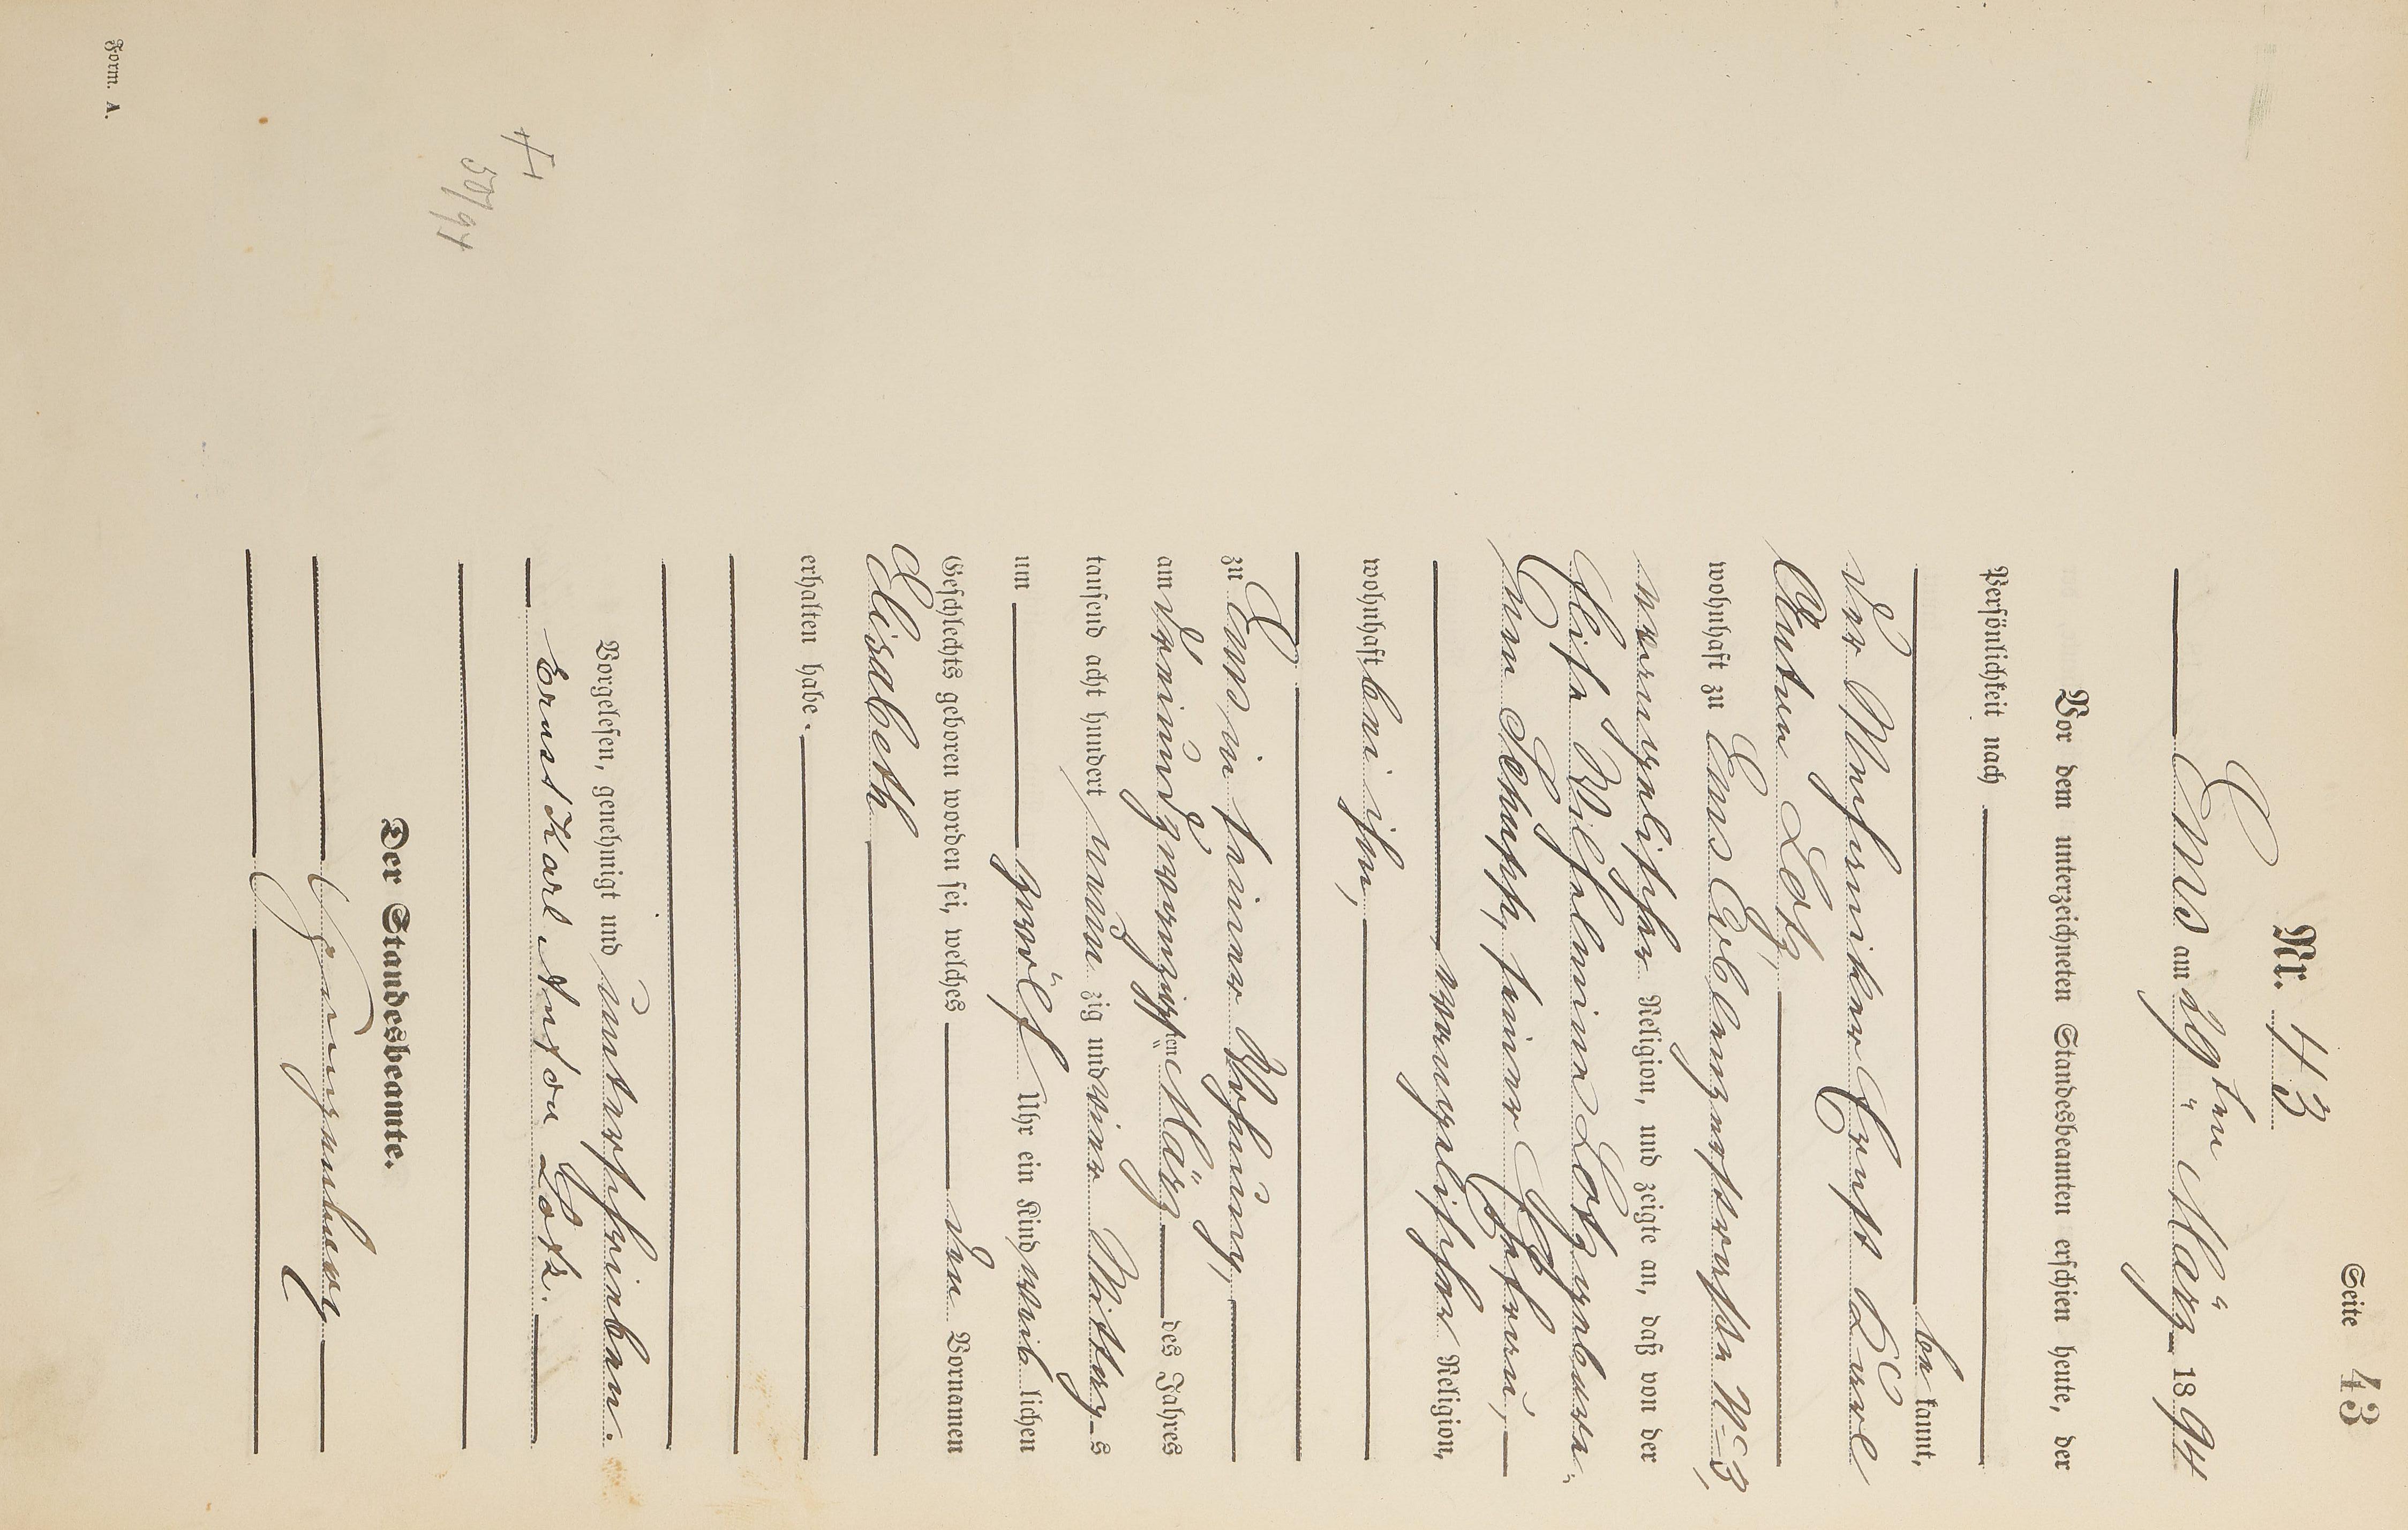 Seite 43
Nr. 43
Ems am 29ten März 1894
Vor dem unterzeichneten Standesbeamten erschien heute, der
Persönlichkeit nach
be kannt,
der Musiker Ernst Karl
Anton Lotz,
wohnhaft zu Ems Coblenzerstrasse No 3,
evangelischer Religion, und zeigte an, daß von der
Wilhelmine Lotz geborene
Schupp, seiner Ehefrau,
evangelischer Religion,
wohnhaft bei ihm,
zu Ems in seiner Wohnung,
am dreiundzwanzigsten März des Jahres
tausend acht hundert neun zig und vier Mittags
um zwölf Uhr ein Kind weiblichen
Geschlechts geboren worden sei, welches den Vornamen
Elisabeth
erhalten habe.
Vorgelesen, genehmigt und unterschrieben.
Ernst Karl Anton Lotz.
Der Standesbeamte.
50/94
Form. A.